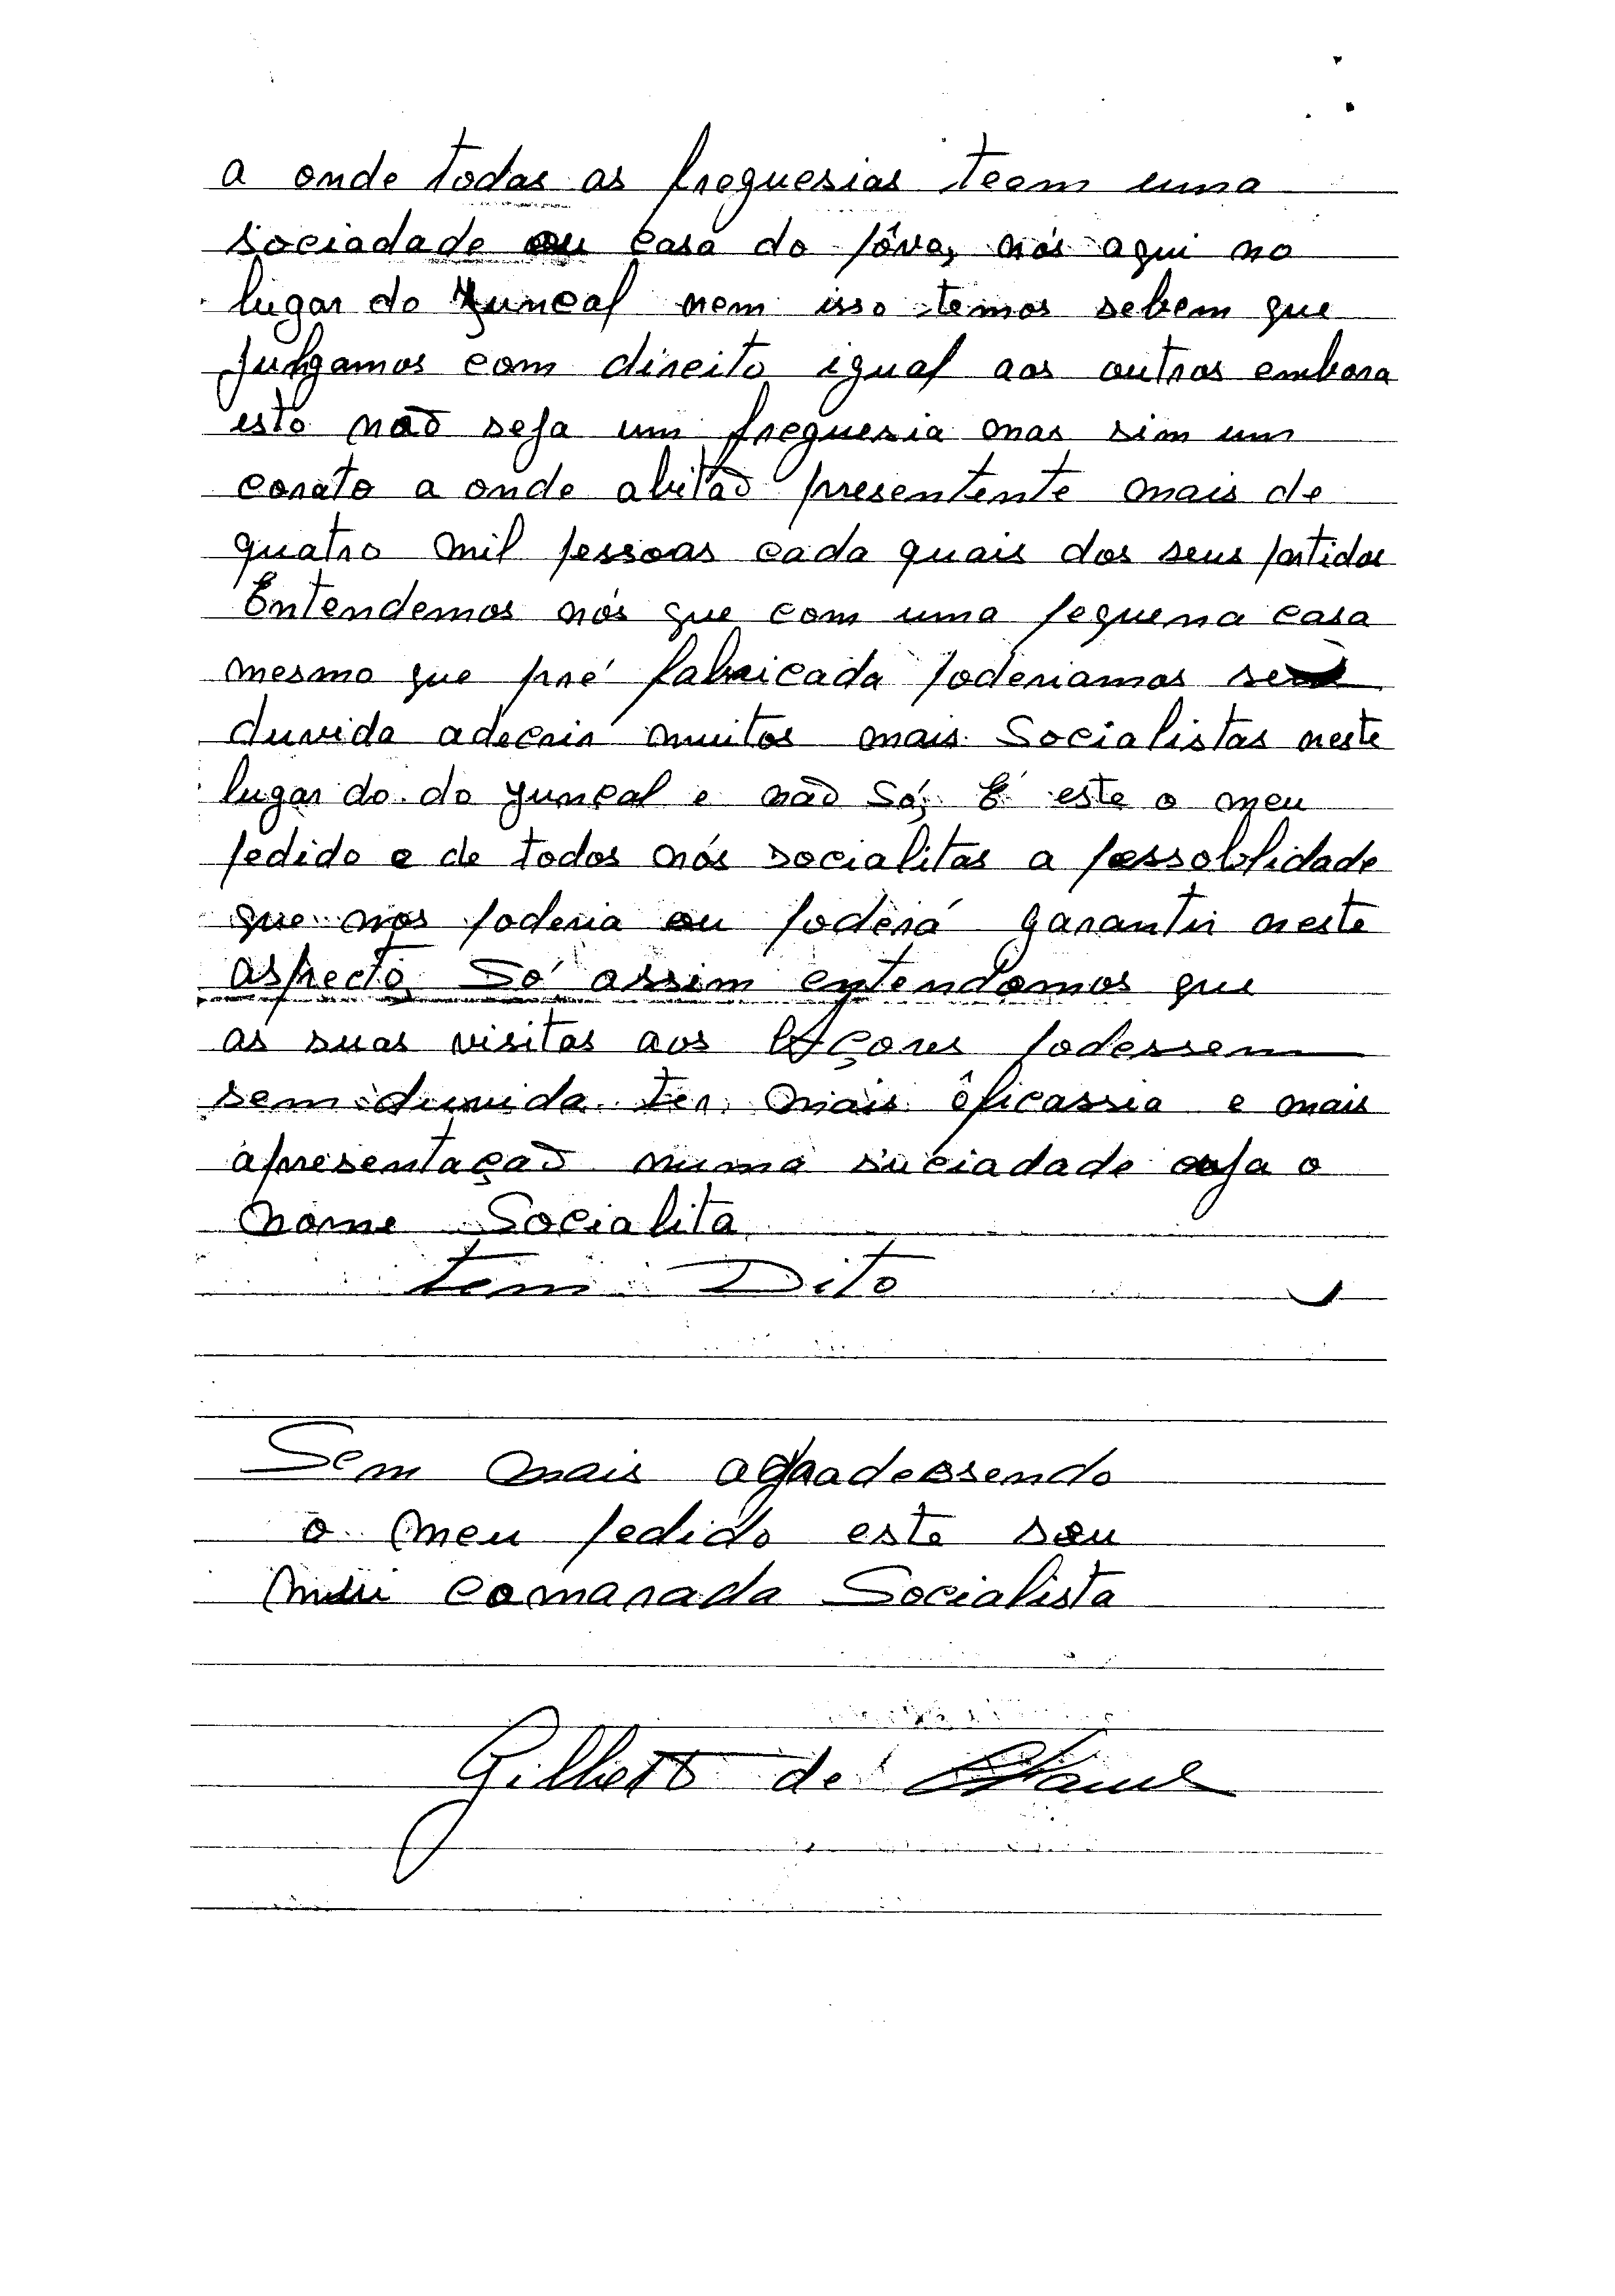 a onde todas as freguesias teem uma
sociadade ou casa do pôvo, nós aqui no
lugar do Juncal nem isso temos sebem que
julgamos com direito igual aos outros embora
esto não seja um freguesia mas sim um
corato a onde abitão presentente mais de
quatro mil pessoas cada quais dos seus partidos
Entendemos nós que com uma pequena casa
mesmo que pré fabricada poderiamos sem
duvida adecrir muitos mais Socialistas neste
lugar do do Juncal e não só, É este o meu
pedido e de todos nós socialitas a possoblidade
que nos poderia ou poderá garantir neste
aspecto. Só assim entendamos que
as suas visitas aos Açores podessem
sem duvida ter mais êficassia e mais
apresentação numa suciadade cuja o
nome Socialita
tem Dito
Sem mais agradessendo
o meu pedido este seu
meu camarada Socialista
Gilberto de